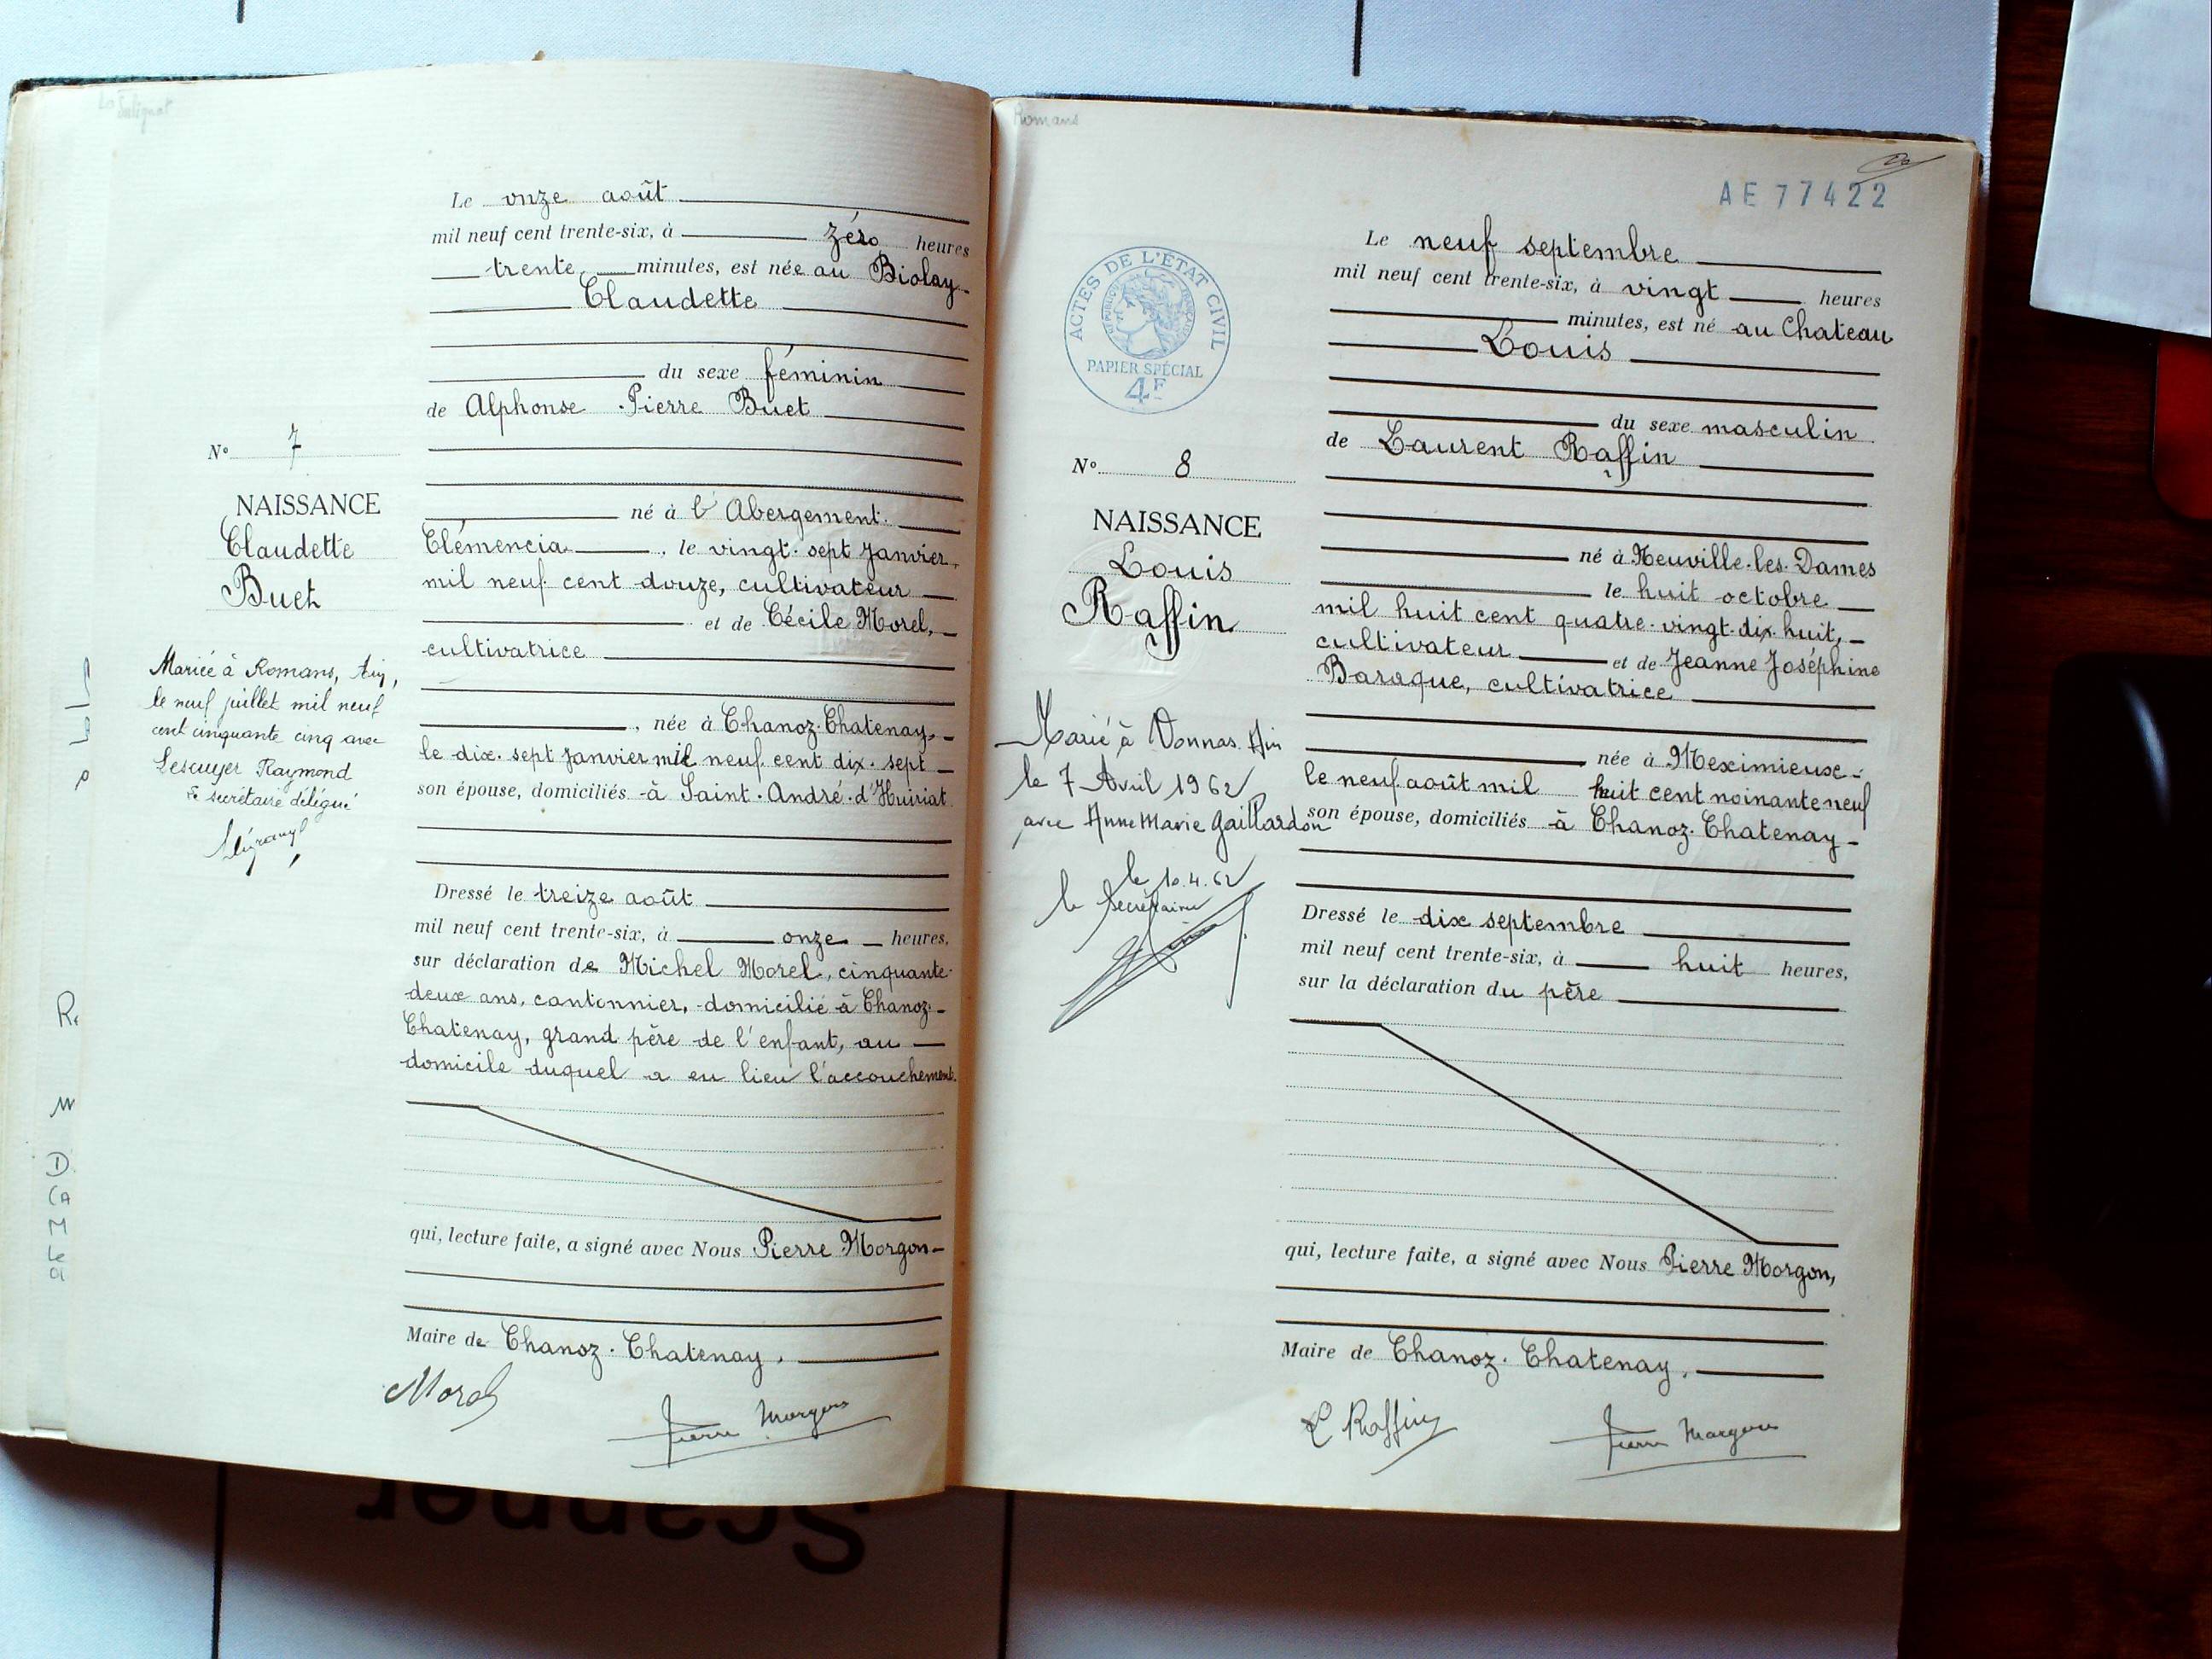 Salignat
Le onze août
mil neuf cent trente-six, à zéro heures
trente minutes, est née au Biolay
Claudette
du sexe féminin
de Alphonse Pierre Buet
N° 7
NAISSANCE
Claudette
Buet
né à l'Abergement
Clémencia, le vingt-sept Janvier
mil neuf cent douze, cultivateur
et de Cécile Morel,
cultivatrice
, née à Chanoz-Chatenay,
le dix-sept Janvier mil neuf cent dix-sept
son épouse, domiciliés à Saint-André-d'Huiriat
Mariée à Romans, Ain,
le neuf juillet mil neuf
cent cinquante cinq avec
Lescuyer Raymond
Le secrétaire délégué
Dressé le treize août
mil neuf cent trente-six, à onze heures,
sur déclaration de Michel Morel, cinquante-
deux ans, cantonnier, domicilié à Chanoz-
Chatenay, grand père de l'enfant, au
domicile duquel a eu lieu l'accouchement.
qui, lecture faite, a signé avec Nous Pierre Morgon
Maire de Chanoz-Chatenay.
Morel
Pierre Morgon
Romans
AE 77422
ACTES DE L'ÉTAT CIVIL
RÉPUBLIQUE FRANÇAISE
PAPIER SPÉCIAL
4F
Le neuf septembre
mil neuf cent trente-six, à vingt heures
minutes, est né au Chateau
Louis
du sexe masculin
de Laurent Raffin
N° 8
NAISSANCE
Louis
Raffin
né à Neuville-les-Dames
le huit octobre
mil huit cent quatre-vingt-dix-huit,
cultivateur et de Jeanne Joséphine
Baraque, cultivatrice
née à Meximieux
le neuf août mil huit cent noinante neuf
son épouse, domiciliés à Chanoz-Chatenay
Marié à Vonnas Ain
le 7 Avril 1962
avec Anne Marie Gaillardon
le 10.4.62
le Secrétaire
Dressé le dix septembre
mil neuf cent trente-six, à huit heures,
sur la déclaration du père
qui, lecture faite, a signé avec Nous Pierre Morgon,
Maire de Chanoz-Chatenay.
L Raffin
Pierre Morgon
Scanner